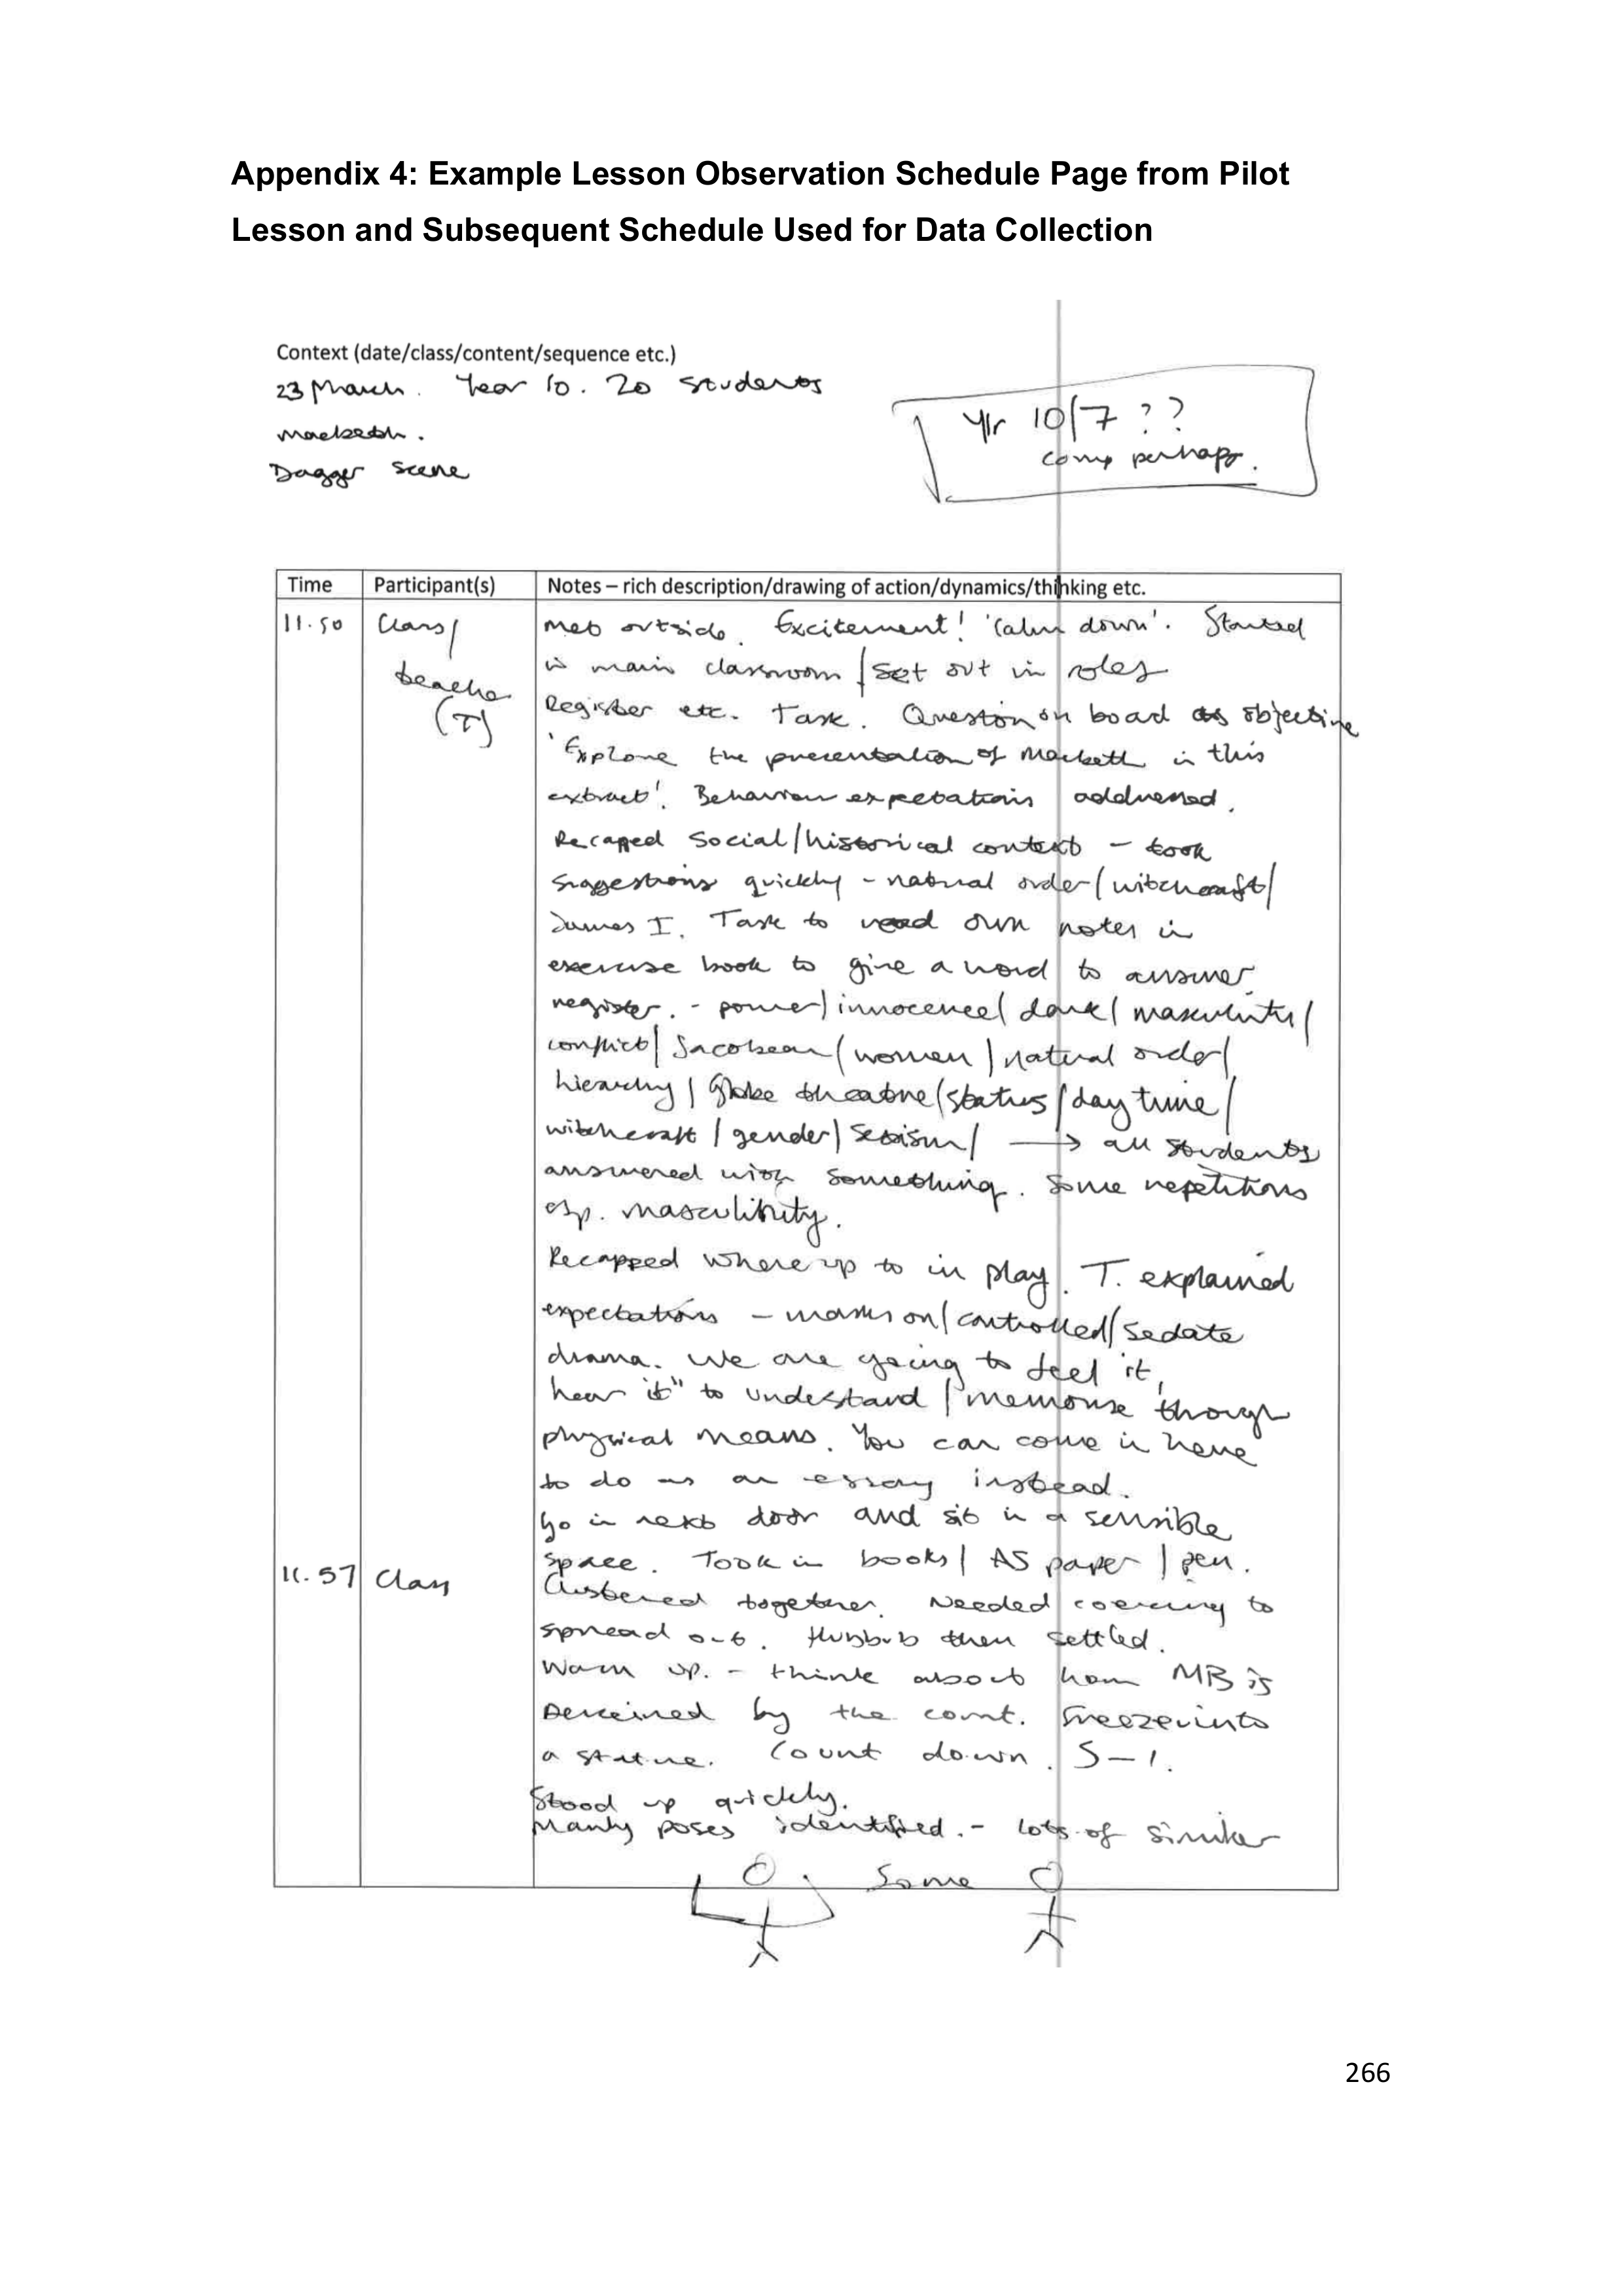 Appendix 4: Example Lesson Observation Schedule Page from Pilot
Lesson and Subsequent Schedule Used for Data Collection
Context (date/class/content/sequence etc.)
23 March. Year 10. 20 students
Macbeth.
Dagger scene
Yr 10/7 ??
comp perhaps.
Time Participant(s) Notes – rich description/drawing of action/dynamics/thinking etc.
11.50 Class/ Met outside. Excitement! 'Calm down'. Started
teacher in main classroom / set out in
(T) Register etc. Task. Question on board as objective
'Explore the presentation of Macbeth in this
extract'. Behaviour expectations addressed.
Recaped social/historical context – took
suggestions quickly – natural order/witchcraft/
James I. Task to read own notes in
exercise book to give a word to answer
register. - power/innocence/dark/masculinity/
conflict/Jacobean/women/natural order/
hierarchy/Globe theatre/status/day time/
witchcraft/gender/sexism/ → all students
answered with something. Some repetitions
esp. masculinity.
Recapped where up to in play. T. explained
expectations – masks on/controlled/sedate
drama. We are going to feel it,
hear it" to understand/memorise through
physical means. You can come in here
to do as an essay instead.
Go in next door and sit in a sensible
space. Took in books/A5 paper/pen.
11.57 Class Clustered together. Needed coercing to
spread out. Hubbub then settled.
Warm up. - think about how MB is
perceived by the court. Freeze into
a statue. Count down. 5–1.
Stood up quickly.
Manly poses identified. - lots of similar
Some
266